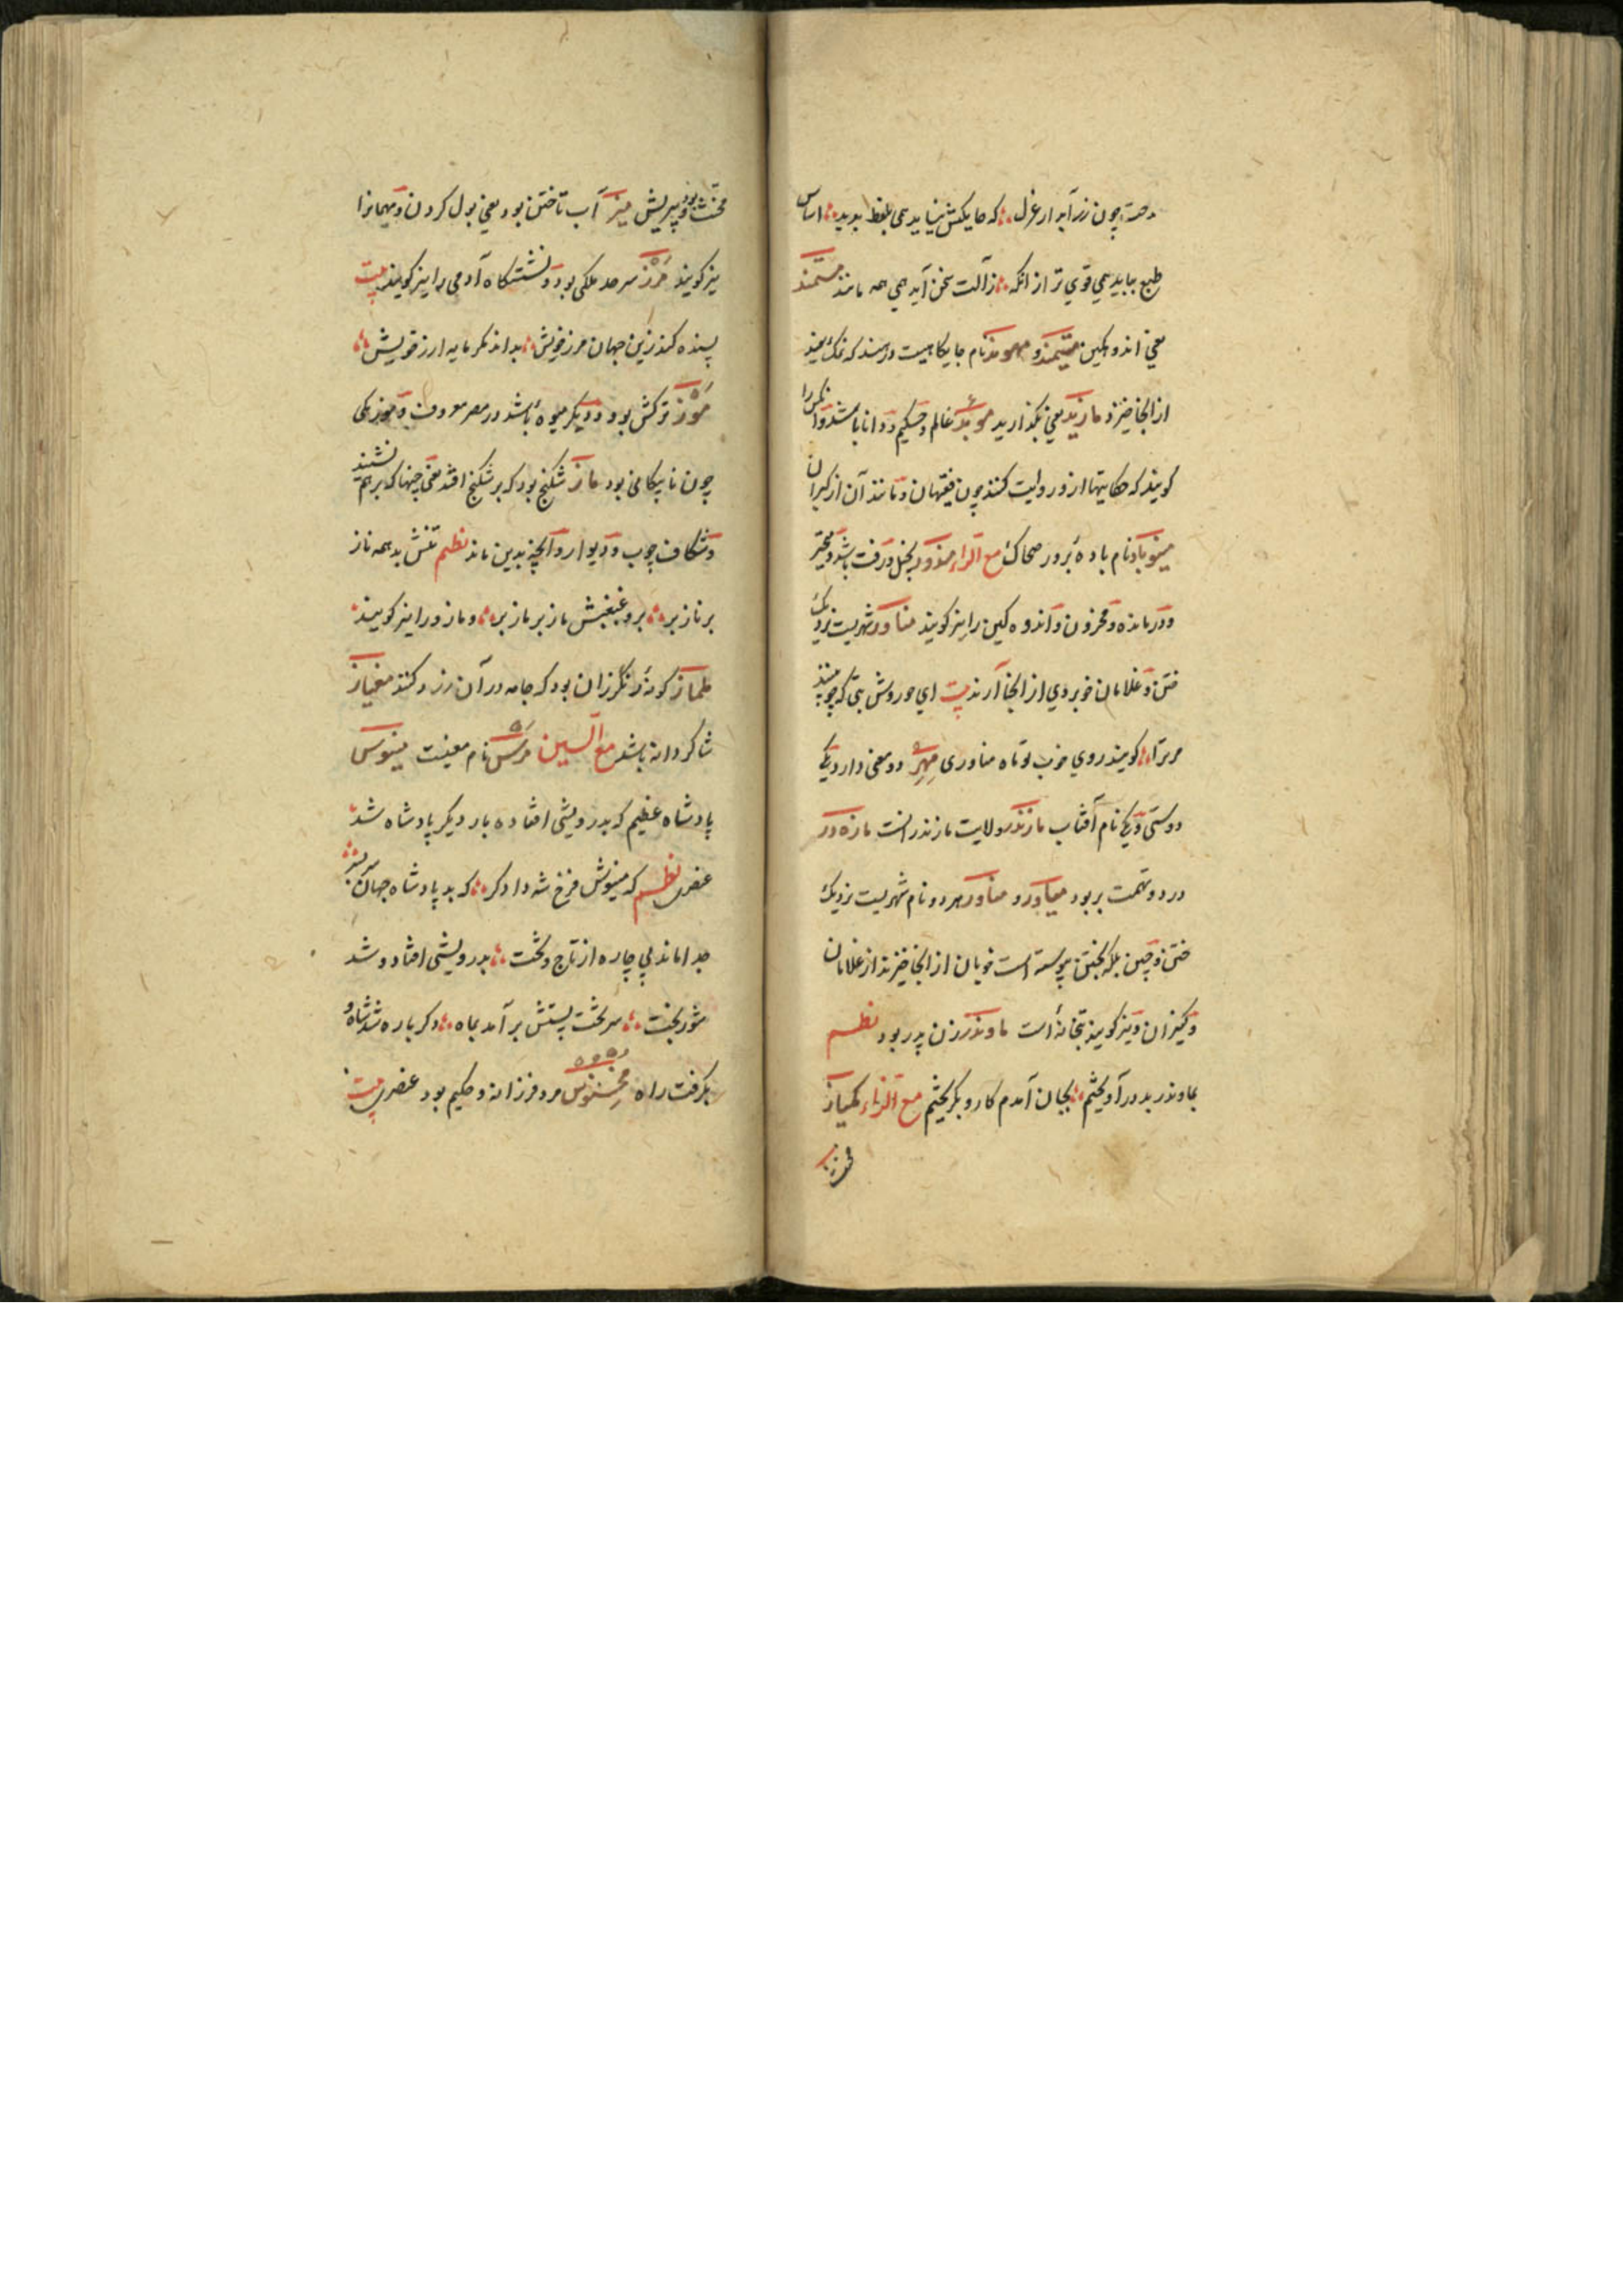 چون زر آید ار غزل که بلفظ بدید اساس
طبع بباید همی قوی تر از انکه ز آلت سخن آید همی همه مانند مستمند
یعنی اندوهکین متیمند و نام جایکاهیست در هند که نمک هند
از انجا خیزد مازید یعنی بکذارید موبد عالم و حکیم و دانا باشد و آنکس را
کویند که حکایتها از و روایت کنند چون فقیهان و مانند آن از کبران
مینوباد نام باده مع الراء بخیل و زفت باشد و متحیر
و درمانده و محزون و اندوه کین را نیز کویند مناور شهریست نزدیک
ختن و غلامان خوبروی از انجا آرند بیت ای حوروش بتی که چو بینند
مر ترا کویند روی خوب تو تاه مناوری مهر دو معنی دارد یکی
دوستی و یکی نام آفتاب مازندر ولایت مازندرانست مازه در
درد و تهمت بر بود میاور و مناور هر دو نام شهریست نزدیک
ختن و چین بلکه بختن پیوسته است خوبان از انجا خیزند از غلامان
و کنیزان و نیز کویند بتخانهٔ است ماوندر زن پدر بود نظم
بماوندر بد در آویختم بجان آمدم کار و بکریختم مع الزاء کمیاز
مخنث و بی ریش بود میز آب تاختن بود یعنی بول کردن و مهمانرا
نیز کویند مرز سرحد ملکی بود و نشستکاه آدمی را نیز کویند بیت
بسنده کند زین جهان مرز خویش بداند مکر مایه ارز خویش
موز ترکش بود و دیکر میوهٔ باشد در مصر معروف
چون نابیکامی بود ماز شکنج بود که بر شکنج افتد یعنی چینها که بر هم نشیند
و شکاف چوب و دیوار و آنچه بدین ماند نظم تنش بد همه ناز
بر ناز بر برو غبغبش ماز بر ماز بر و مازو را نیز کویند
ملماز کونهٔ رنکرزان بود که جامه در آن رزد کنند مغیاز
شاکردانه باشد مع السین مرس نام مغیست مینوس
پادشاه عظیم که بدرویشی افتاده بار دیکر پادشاه شد
عنصری نظم که مینوش فرخ شه دادکر که بد پادشاه جهان سر بسر
جدا ماند بی چاره از تاج و تخت بدرویشی افتاد و شد
شوربخت سر تخت بختش بر آمد بماه دکر باره شد شاه و
بکرفت راه مخسنوس مرد فرزانه و حکیم بود عنصری بیت